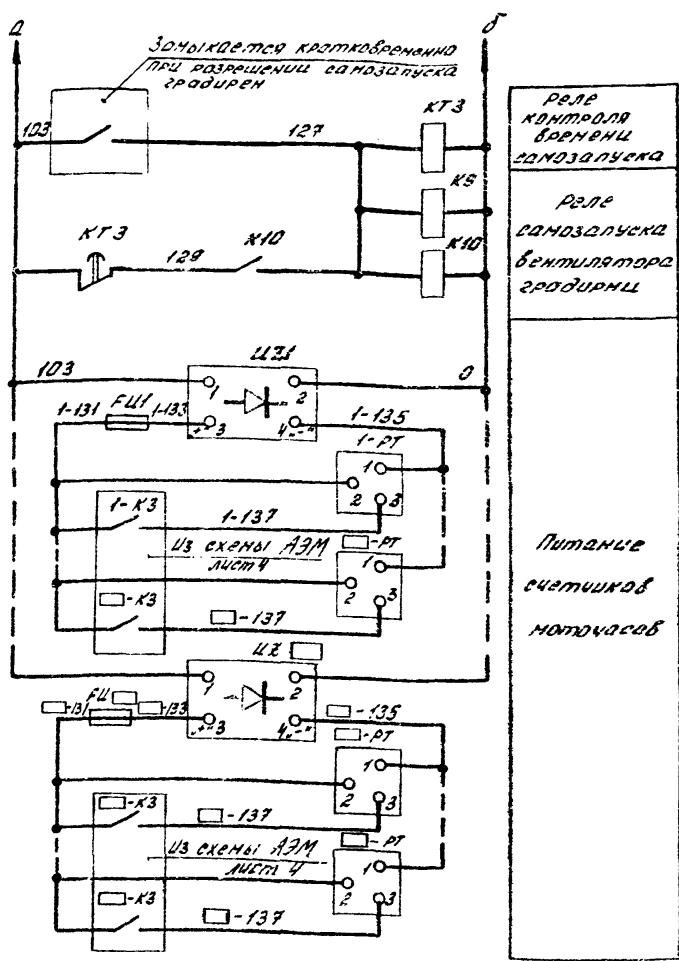 а
б
Замыкается кратковременно
при разрешении самозапуска
градирен
103
127
КТ3
К9
К10
КТ3
129
К10
Реле
контроля
времени
самозапуска
Реле
самозапуска
вентилятора
градирни
UZ1
103
1
2
0
1-131
FU1
1-133
„+“3
4„-“
1-135
1-РТ
1
2
3
1-К3
1-137
-РТ
Из схемы АЭМ
лист 4
1
2
3
-К3
-137
Питание
счетчиков
моточасов
UZ
1
2
-131
FU
-133
„+“3
4„-“
-135
-РТ
1
2
3
-К3
-137
-РТ
Из схемы АЭМ
лист 4
1
2
3
-К3
-137